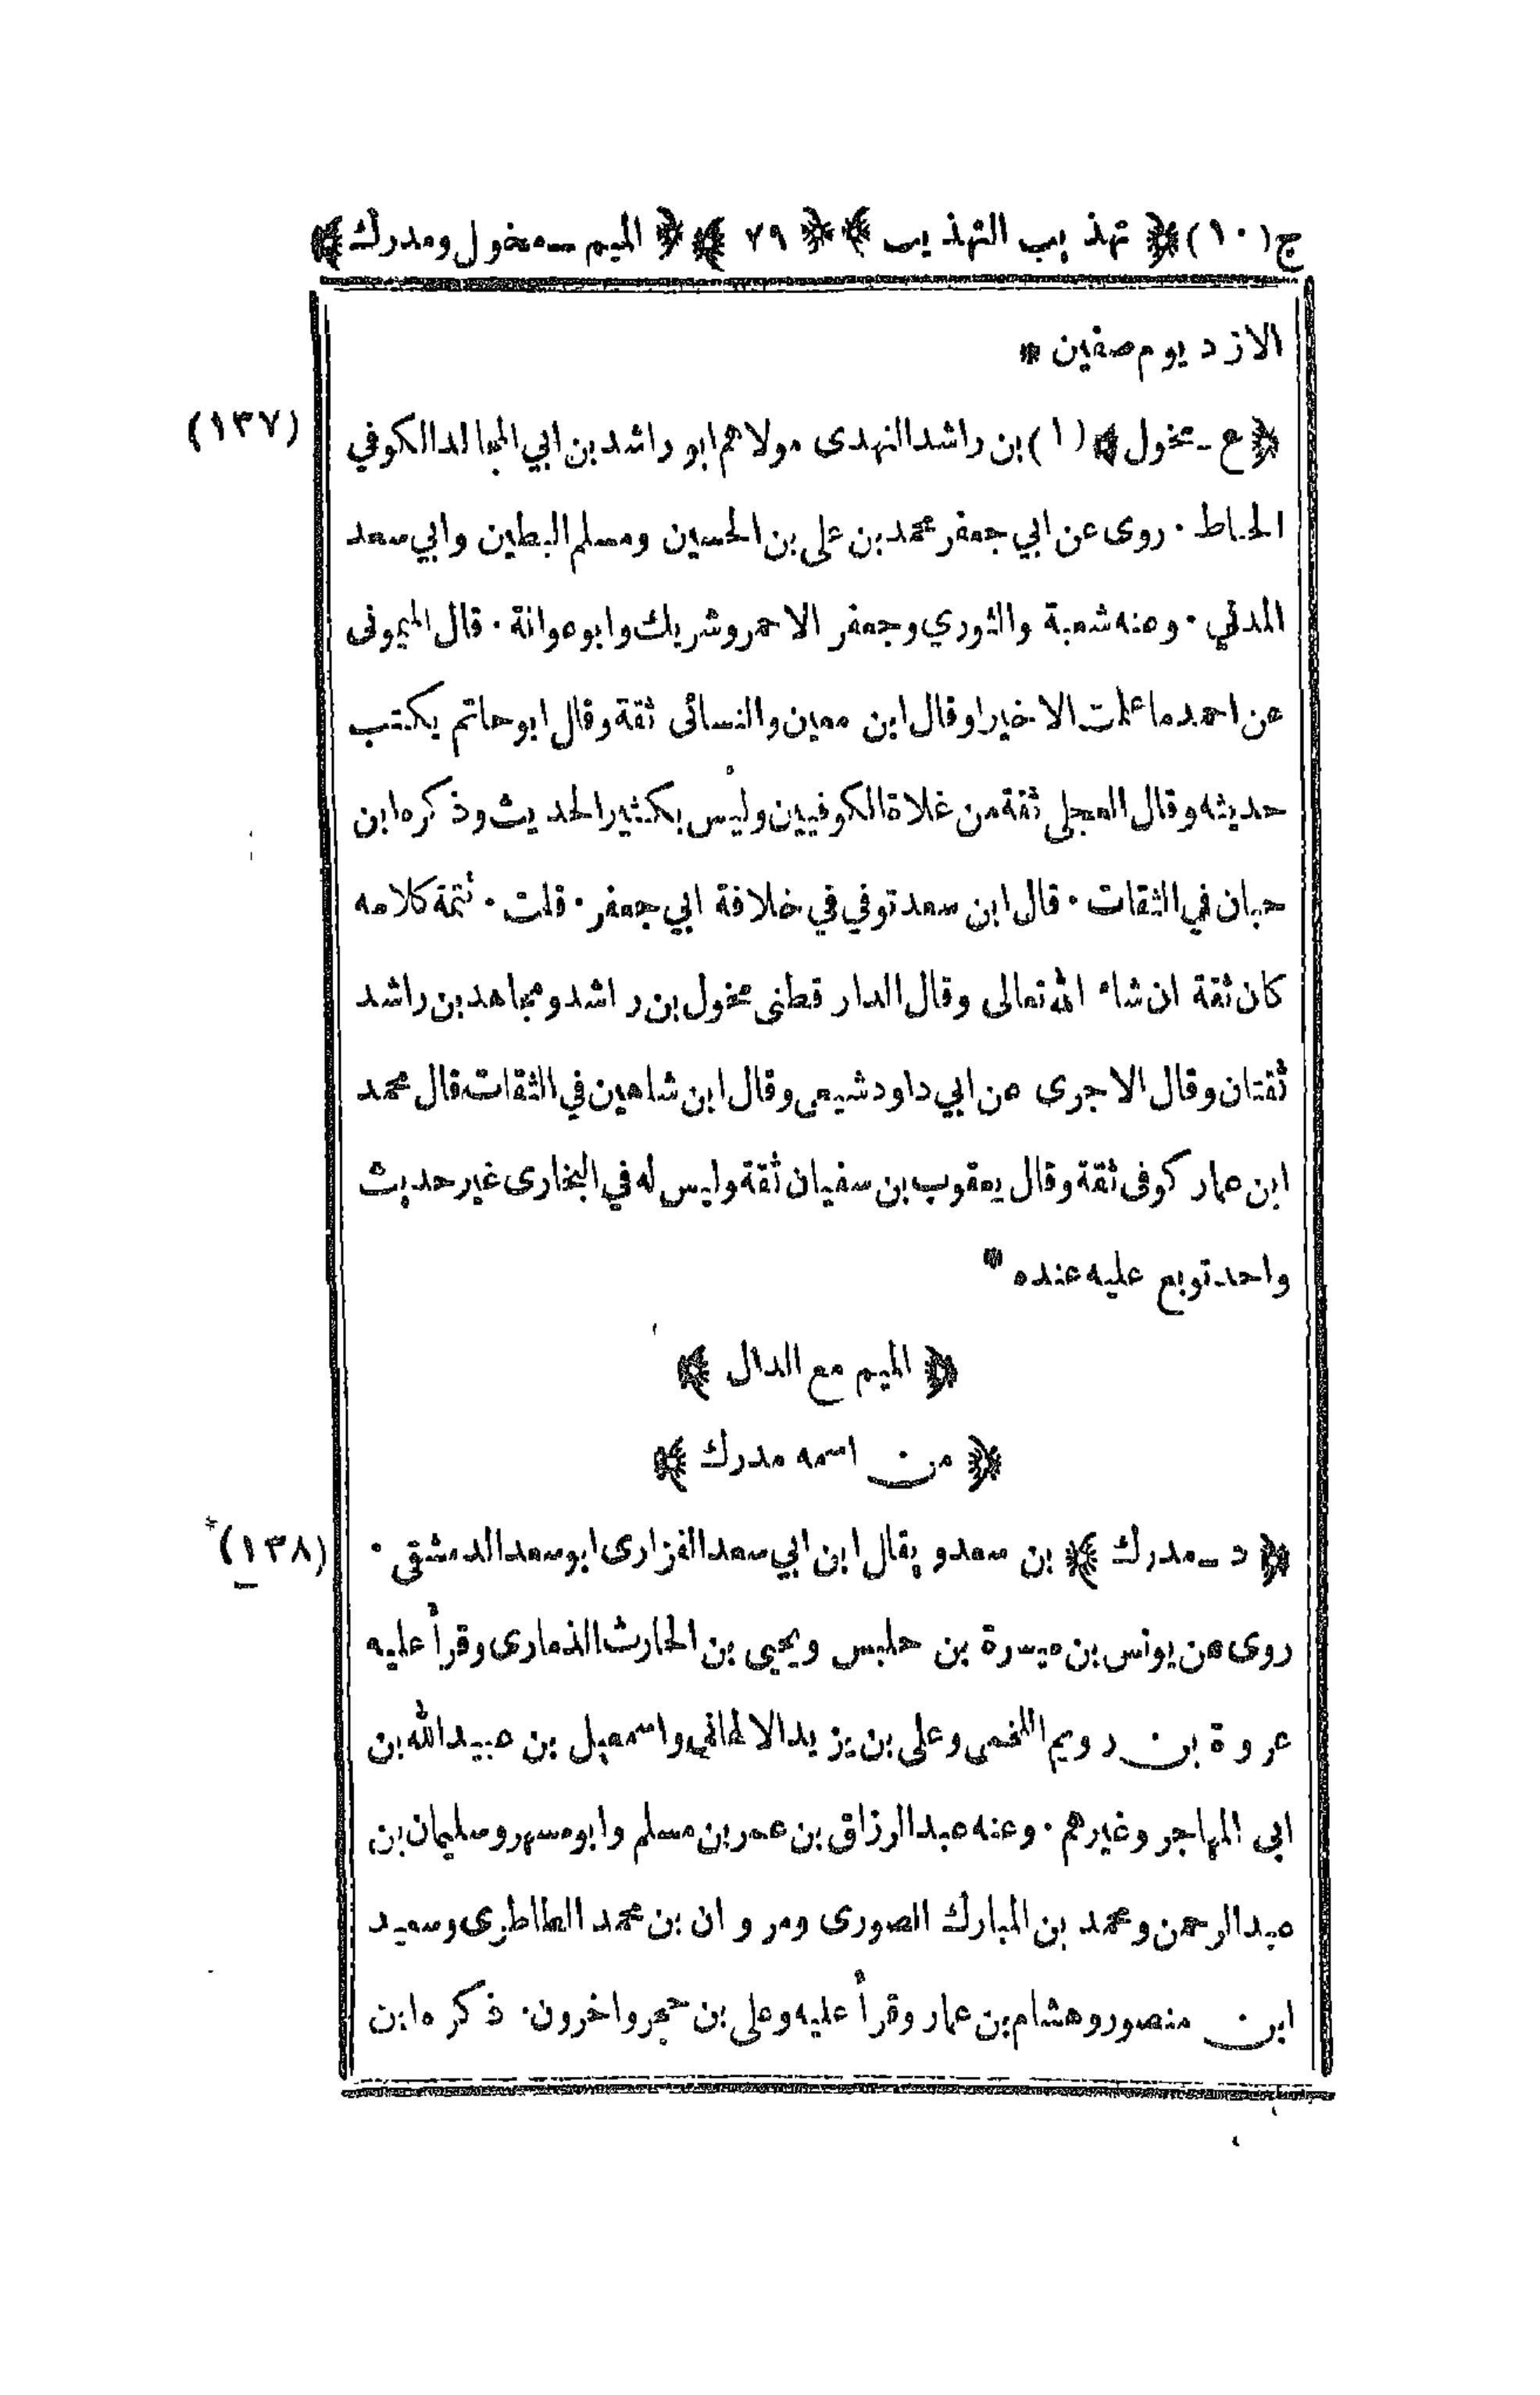 ج (١٠) ﴿ تهذيب التهذيب ﴾ ﴿ ٧٩ ﴾ ﴿ الميم ــ مخول ومدرك ﴾
الازد يوم صفين *
(١٣٧) ﴿ ع ــ مخول ﴾ (١) بن راشد النهدى مولاهم ابو راشد بن ابي المجالد الكوفي
الحناط · روى عن ابي جعفر محمد بن على بن الحسين ومسلم البطين وابي سعد
المدني · وعنه شعبة والثوري وجعفر الاحمر وشريك وابو عوانة · قال الميمونى
عن احمد ما علمت الا خيرا وقال ابن معين والنسائى ثقة وقال ابو حاتم يكتب
حديثه وقال العجلى ثقة من غلاة الكوفيين وليس بكثير الحديث وذكره ابن
حبان في الثقات · قال ابن سعد توفي في خلافة ابي جعفر · قلت · تتمة كلامه
كان ثقة ان شاء الله تعالى وقال الدار قطنى مخول بن راشد ومجاهد بن راشد
ثقتان وقال الاجرى عن ابي داود شيعى وقال ابن شاهين في الثقات قال محمد
ابن عمار كوفى ثقة وقال يعقوب بن سفيان ثقة وليس له في البخارى غير حديث
واحد توبع عليه عنده *
﴿ الميم مع الدال ﴾
﴿ من اسمه مدرك ﴾
(١٣٨)* ﴿ د ــ مدرك ﴾ بن سعد ويقال ابن ابي سعد الفزارى ابو سعد الدمشقى ·
روى عن يونس بن ميسرة بن حلبس ويحيى بن الحارث الذمارى وقرأ عليه
عروة بن رويم اللخمى وعلى بن يزيد الالهاني واسمعيل بن عبيد الله بن
ابى المهاجر وغيرهم · وعنه عبد الرزاق بن عمر بن مسلم وابو مسهر وسليمان بن
عبد الرحمن ومحمد بن المبارك الصورى ومروان بن محمد الطاطرى وسعيد
ابن منصور وهشام بن عمار وقرأ عليه وعلى بن حجر واخرون · ذكره ابن